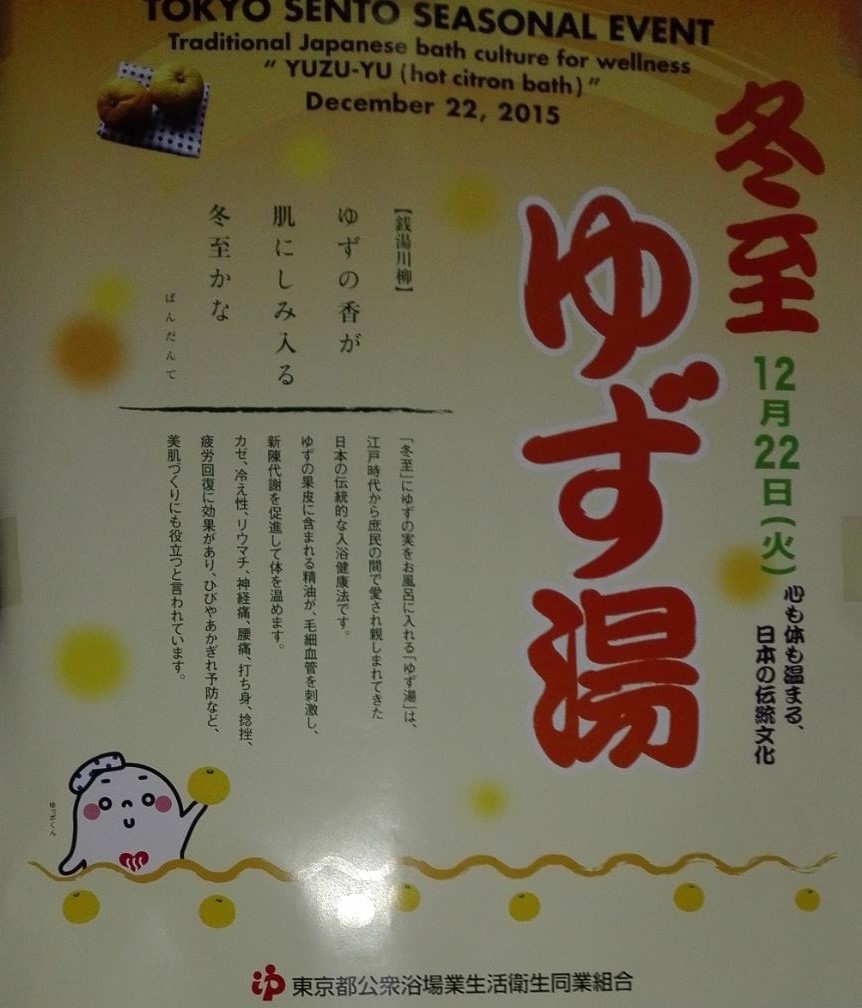 TOKYO SENTO SEASONAL EVENT
Traditional Japanese bath culture for wellness
“ YUZU-YU (hot citron bath) ”
December 22, 2015
冬至
ゆず湯
12月22日(火)
心も体も温まる、
日本の伝統文化
【銭湯川柳】
ゆずの香が
肌にしみ入る
冬至かな
ばんだんて
「冬至」にゆずの実をお風呂に入れる「ゆず湯」は、
江戸時代から庶民の間で愛され親しまれてきた
日本の伝統的な入浴健康法です。
ゆずの果皮に含まれる精油が、毛細血管を刺激し、
新陳代謝を促進して体を温めます。
カゼ、冷え性、リウマチ、神経痛、腰痛、打ち身、捻挫、
疲労回復に効果があり、ひびやあかぎれ予防など、
美肌づくりにも役立つと言われています。
ゆっポくん
ゆ 東京都公衆浴場業生活衛生同業組合